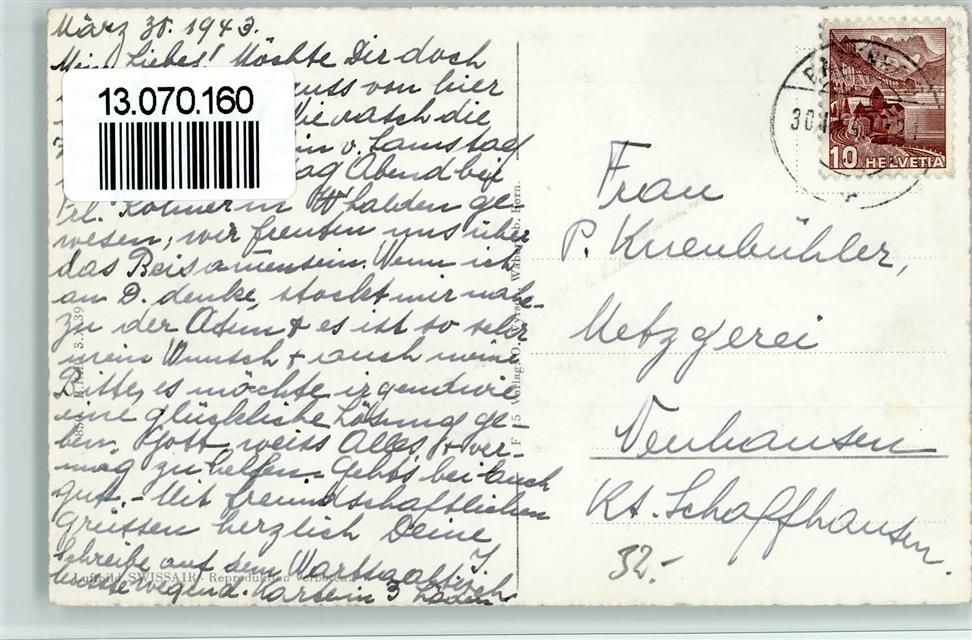 März 30. 1943.
Mein Liebes! Möchte Dir doch
uss von hier
Wie rasch die
in v. Samstag
tag Abend bei
Frl. in halden ge
wesen, wir freuten uns über
das Beisamensein. Wenn ich
an D. denke, stockt mir nahe-
zu der Atem & es ist so sehr
mein Wunsch & auch meine
Bitte, es möchte irgendwie
eine glückliche Lösung ge-
ben. Gott weiss Alles & ver-
mag zu helfen. Gehts bei auch
gut. - Mit freundschaftlichen
Grüssen herzlich Deine
J.
Schreibe auf dem Wartsaal
Luftbild SWISSAIR - Reproduktion verboten
13.070.160
3.39
F 15 Verlag O. Wyrsch, Wabern b. Bern.
30.
10 HELVETIA
Frau
P. Knenbühler,
Metzgerei
Neuhausen
Kt. Schaffhausen.
32.-